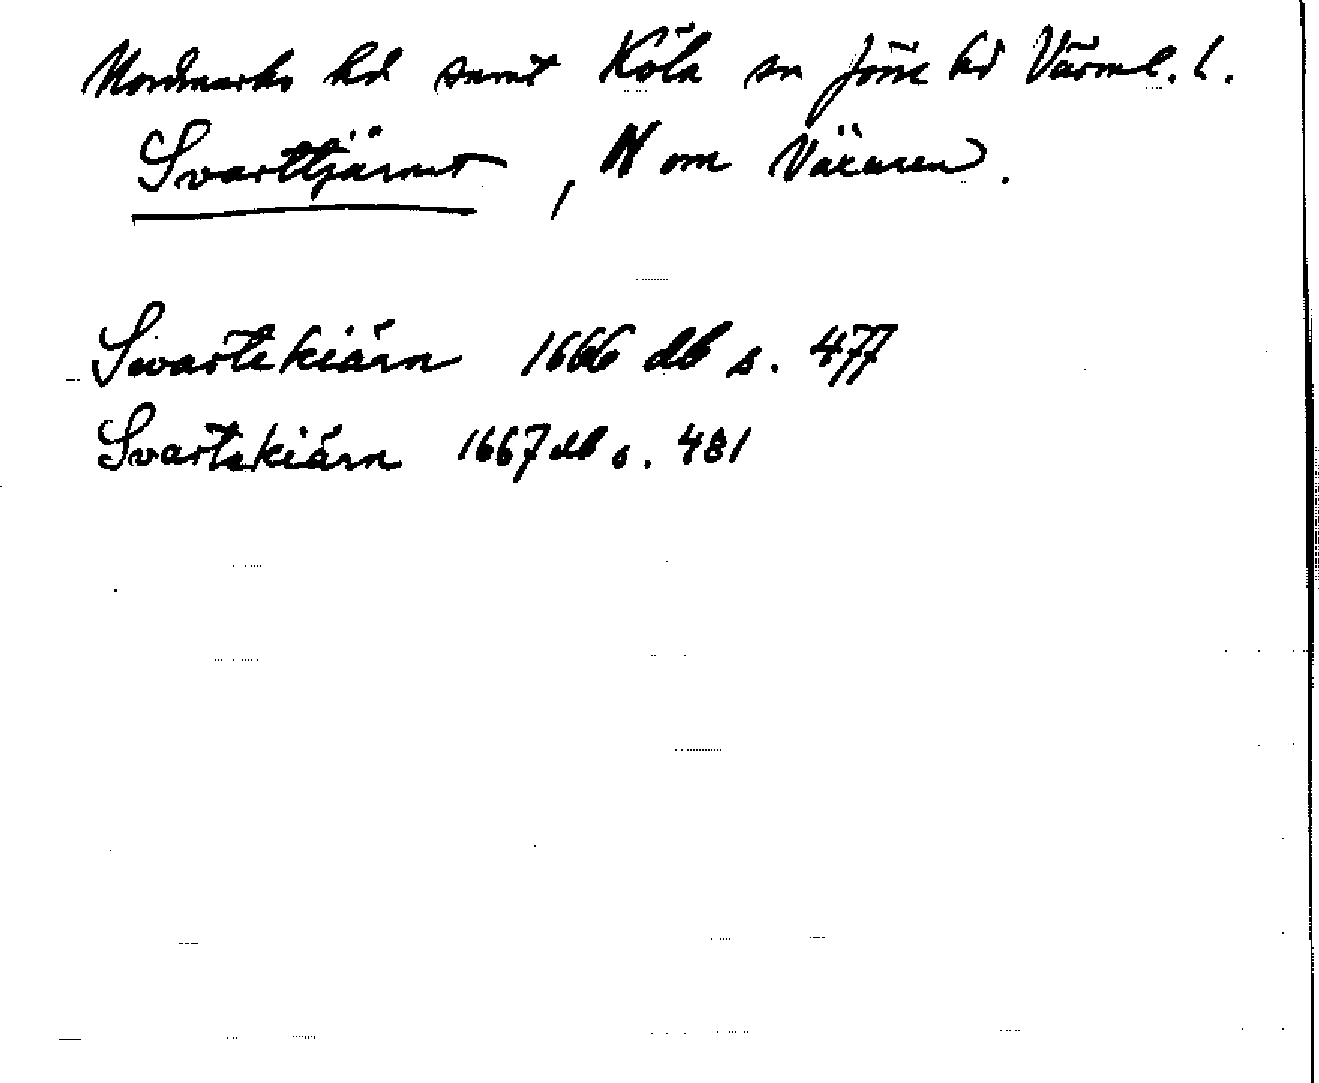 Nordmarks hd samt Köla sn Jösse hd Värml. l.
Svarttjärnet, N om Växuren.
Swartekiärn 1666 db s. 477
Svartekiärn 1667 db s. 481